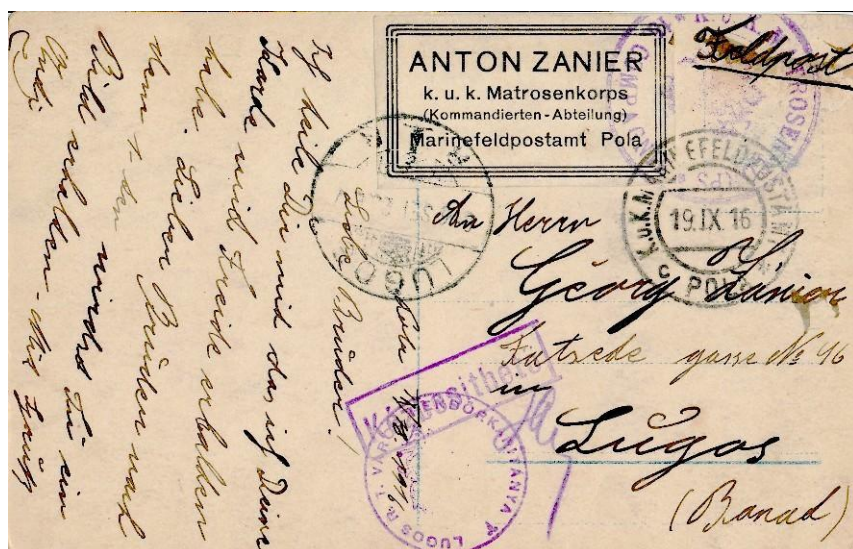 ANTON ZANIER
k. u. k. Matrosenkorps
(Kommandierten-Abteilung)
Marinefeldpostamt Pola
Feldpost
K.u.K. MARINEFELDPOSTAMT
19.IX.16
c
POLA
LUGOS
An Herrn
Georg Zanier
gasse No 46
in
Lugos
(Banad)
Kézbesíthető
LUGOS R. T. VÁROS RENDŐRKAPITÁNYA
Pola
1916
Liebe Bruder!
Ich teile Dir mid das ich Deine
Karde mid Freide erhalden
habe. Lieber Bruder nach
dem wirdst Du ein
Bild erhalden. Mid Gruß